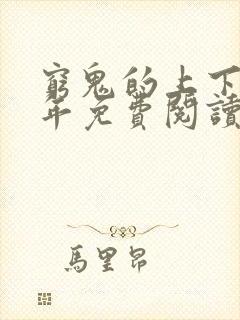 窮鬼的上下
年免費閱讀
馬里昂